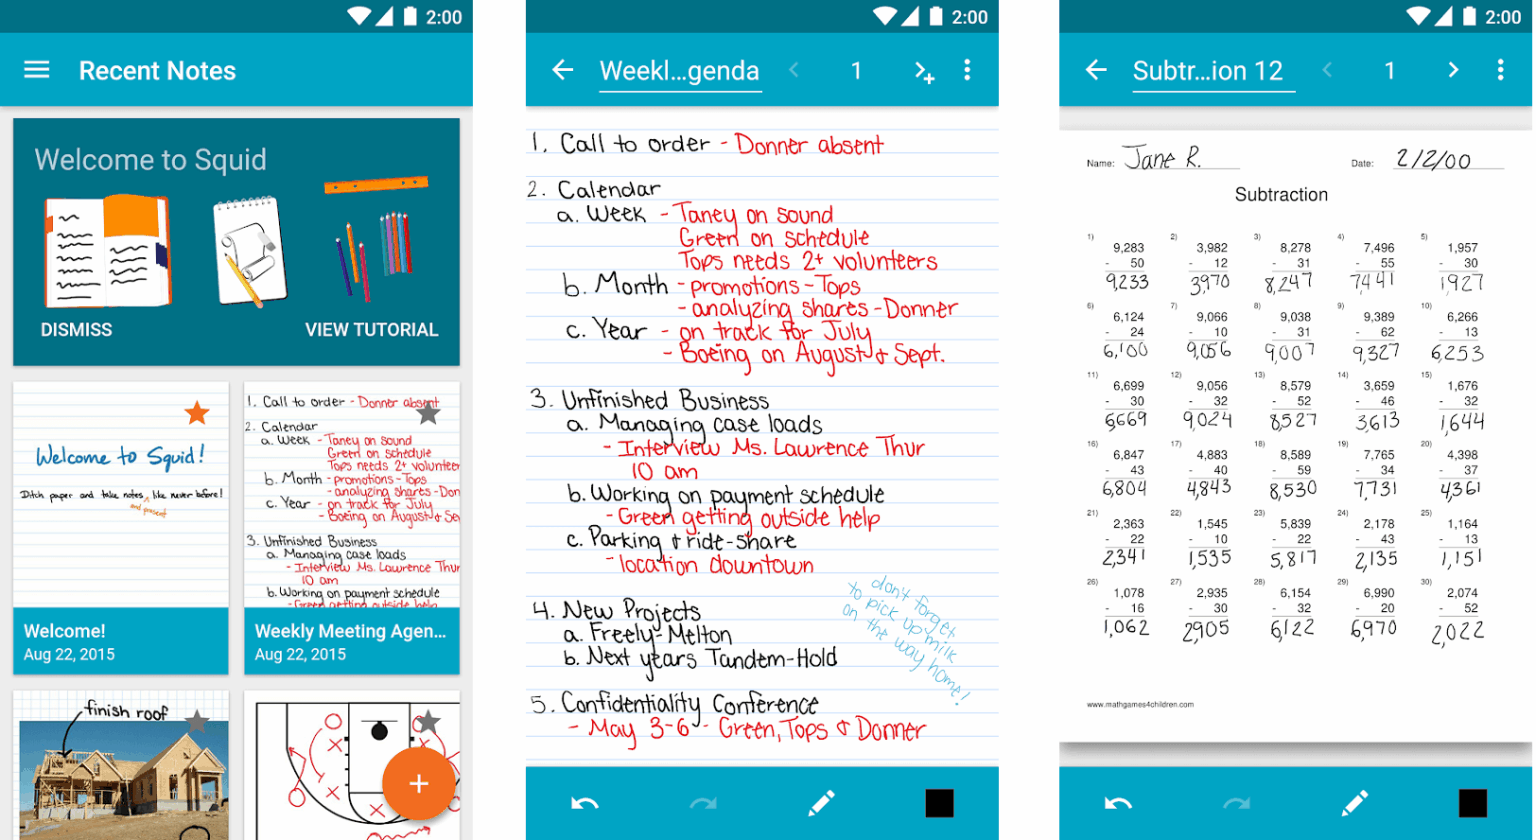 2:00
Recent Notes
Welcome to Squid
DISMISS VIEW TUTORIAL
Welcome to Squid!
Ditch paper and take notes like never before!
and present
Welcome!
Aug 22, 2015
1. Call to order - Donner absent
2. Calendar
a. Week - Taney on sound
Green on schedule
Tops needs 2+ volunteer
b. Month - promotions - Tops
- analyzing shares - Don
c. Year - on track for July
- Boeing on August & Se
3. Unfinished Business
a. Managing case loads
- Interview Ms. Lawrence Thur
10 am
b. Working on payment schedule
- Green getting outside help
Weekly Meeting Agen...
Aug 22, 2015
finish roof
+
2:00
Weekl...genda 1
1. Call to order - Donner absent
2. Calendar
a. Week - Taney on sound
Green on schedule
Tops needs 2+ volunteers
b. Month - promotions - Tops
- analyzing shares - Donner
c. Year - on track for July
- Boeing on August & Sept.
3. Unfinished Business
a. Managing case loads
- Interview Ms. Lawrence Thur
10 am
b. Working on payment schedule
- Green getting outside help
c. Parking & ride-share
- location downtown
don't forget
to pick up milk
on the way home!
4. New Projects
a. Freely-Melton
b. Next years Tandem-Hold
5. Confidentiality Conference
- May 3-6 - Green, Tops & Donner
2:00
Subtr...ion 12 1
Name: Jane R. Date: 2/2/00
Subtraction
1) 2) 3) 4) 5)
9,283 3,982 8,278 7,496 1,957
- 50 - 12 - 31 - 55 - 30
9,233 3,970 8,247 7441 1,927
6) 7) 8) 9) 10)
6,124 9,066 9,038 9,389 6,266
- 24 - 10 - 31 - 62 - 13
6,100 9,056 9,007 9,327 6,253
11) 12) 13) 14) 15)
6,699 9,056 8,579 3,659 1,676
- 30 - 32 - 52 - 46 - 32
6,669 9,024 8,527 3,613 1,644
16) 17) 18) 19) 20)
6,847 4,883 8,589 7,765 4,398
- 43 - 40 - 59 - 34 - 37
6,804 4,843 8,530 7,731 4,361
21) 22) 23) 24) 25)
2,363 1,545 5,839 2,178 1,164
- 22 - 10 - 22 - 43 - 13
2,341 1,535 5,817 2,135 1,151
26) 27) 28) 29) 30)
1,078 2,935 6,154 6,990 2,074
- 16 - 30 - 32 - 20 - 52
1,062 2,905 6,122 6,970 2,022
www.mathgames4children.com